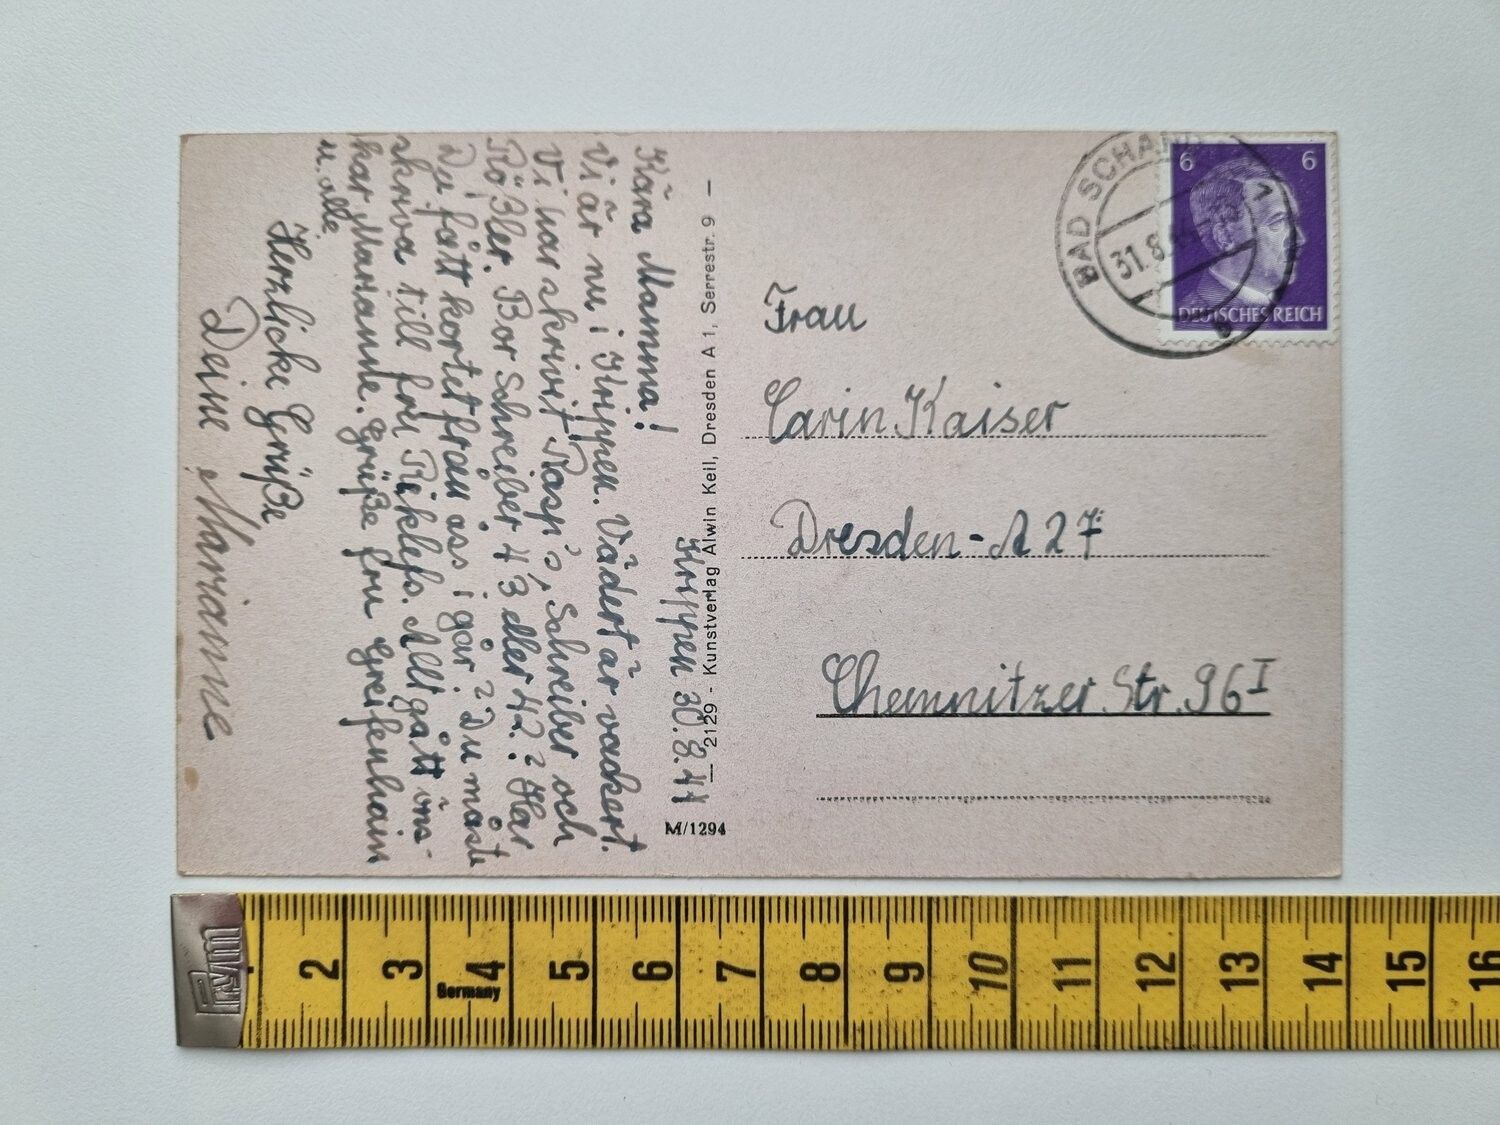 Krippen 30.8.41
Kära Mamma!
Vi är nu i Krippen. Vädert är vackert.
Vi har skrivit Rasp's, Schreiber och
Rößler. Bor Schreiber 43 eller 42? Har
Du fått kortet fran oss i går? Du måste
skriva till fru Riklefs. Allt gått ins-
kar Marianne. Grüße fru Greifenhain
u. alle.
Herzliche Grüße
Deine Marianne
— 2129 - Kunstverlag Alwin Keil, Dresden A 1, Serrestr. 9 —
M/1294
BAD SCHAND
31.8.
b
6 6
DEUTSCHES REICH
Frau
Carin Kaiser
Dresden-A 27
Chemnitzer Str. 96 I
Prym
2 3 4 5 6 7 8 9 10 11 12 13 14 15 16
Germany